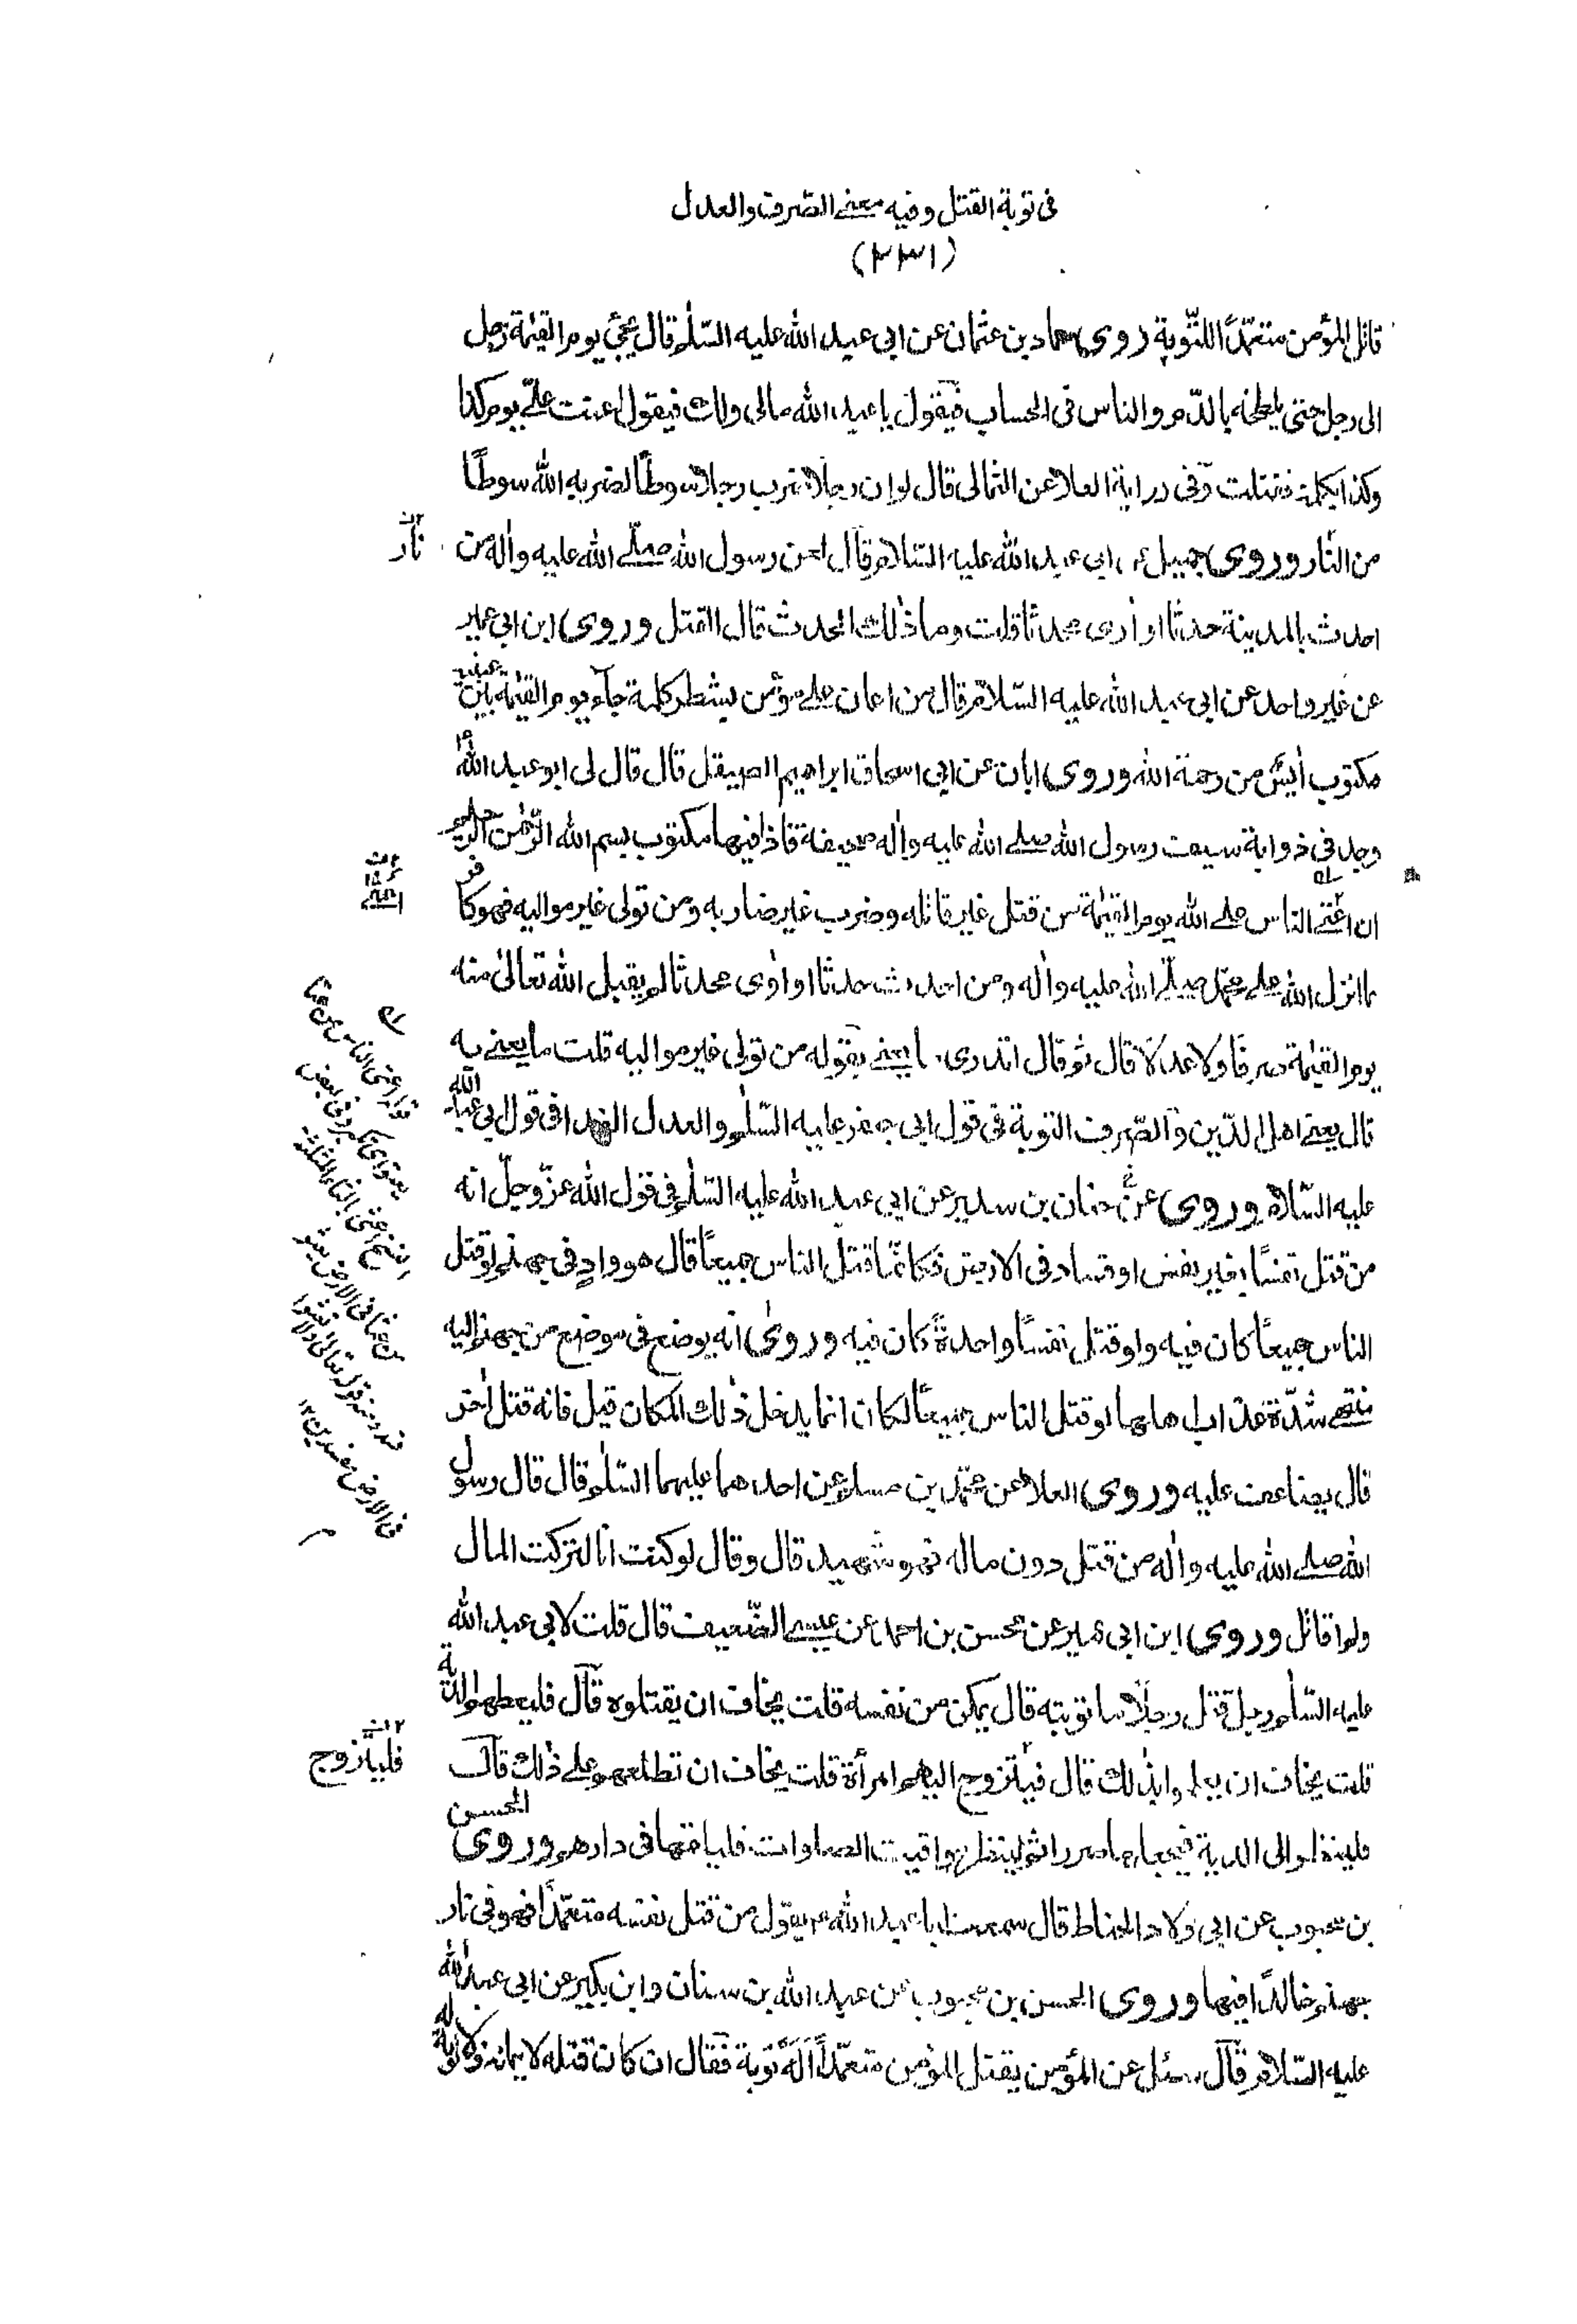 فى توبة القتل وفيه معنى الصّرف والعدل
(٢٣١)
قاتل المؤمن متعمّدًا للتّوبة روى حماد بن عثمان عن ابى عبد الله عليه السّلم قال يجئ يوم القيمة رجل
الى رجل حتى يلطخه بالدّم والناس فى الحساب فيقول يا عبد الله مالى ولك فيقول اعنت علىّ يوم كذا
وكذا بكلمة فقتلت وفى رواية العلا عن الثمالى قال لو ان رجلا ضرب رجلا سوطًا لضربه الله سوطًا
من النّار وروى جميل عن ابى عبد الله عليه السّلام قال لعن رسول الله صلى الله عليه واله من
نار
احدث بالمدينة حدثا او اوى محدثا قلت وما ذلك المحدث قال القتل وروى ابن ابى عمير
عن غير واحد عن ابى عبد الله عليه السّلام قال من اعان على مؤمن بشطر كلمة جاء يوم القيمة بين عينيه
مكتوب ايس من رحمة الله وروى ابان عن ابى اسحاق ابراهيم الصيقل قال قال لى ابو عبد الله
وجد فى ذوابة سيف رسول الله صلى الله عليه واله صحيفة فاذا فيها مكتوب بسم الله الرّحمن الرّحيم
ان اعتى الناس على الله يوم القيمة من قتل غير قاتله وضرب غير ضاربه ومن تولى غير مواليه فهو كافر
بما انزل الله على محمّد صلى الله عليه واله ومن احدث حدثا او اوى محدثا لم يقبل الله تعالى منه
يوم القيمة صرفًا ولا عدلًا قال ثم قال اتدرى ما يعنى بقوله من تولى غير مواليه قلت ما يعنى به
قال يعنى اهل الدّين والصّرف التوبة فى قول ابى جعفر عليه السّلم والعدل الفدا فى قول ابى عبد الله
عليه السّلام وروى عن حنان بن سدير عن ابى عبد الله عليه السّلم فى قول الله عزّ وجلّ انه
من قتل نفسًا بغير نفس او فساد فى الارض فكانّما قتل الناس جميعًا قال هو وادٍ فى جهنم لو قتل
الناس جميعًا كان فيه ولو قتل نفسًا واحدةً كان فيه وروى انه يوضع فى موضع من جهنم اليه
ينتهى شدّة عذاب اهلها لو قتل الناس جميعًا لكان انما يدخل ذلك المكان قيل فانه قتل اخر
قال يضاعف عليه وروى العلا عن محمّد بن مسلم عن احدهما عليهما السّلم قال قال رسول
الله صلى الله عليه واله من قتل دون ماله فهو شهيد قال وقال لو كنت انا لتركت المال
ولم اقاتل وروى ابن ابى عمير عن محسن بن احمد عن عيسى الضّعيف قال قلت لابى عبد الله
عليه السّلم رجل قتل رجلًا ما توبته قال يمكن من نفسه قلت يخاف ان يقتلوه قال فليعطهم الدية
قلت يخاف ان يعلموا بذلك قال فيتزوج اليهم امرأة قلت يخاف ان تطلعهم على ذلك قال
فليتزوج
فلينظر الى الدية فيجعلها صررا ثم لينظر مواقيت الصلوات فليلقها فى دارهم وروى الحسن
بن محبوب عن ابى ولاد الحناط قال سمعت ابا عبد الله ع يقول من قتل نفسه متعمّدًا فهو فى نار
جهنم خالدًا فيها وروى الحسن بن محبوب عن عبد الله بن سنان وابن بكير عن ابى عبد الله
عليه السّلام قال سئل عن المؤمن يقتل المؤمن متعمّدًا اله توبة فقال ان كان قتله لايمانه فلا توبة له